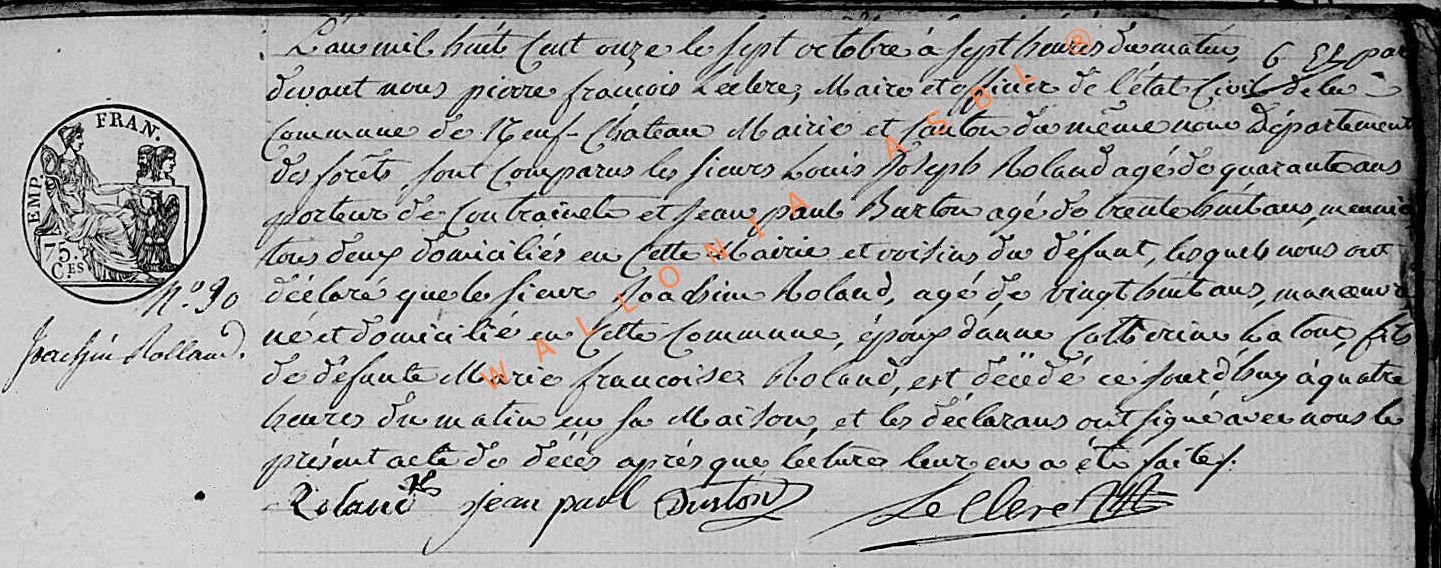 L'an mil huit Cent onze le sept octobre à sept heures du matin, par
devant nous pierre françois Leclerc, Maire et officier de l'état Civil de la
Commune de Neuf-Chateau Mairie et Canton du même nom Département
des forêts, sont Comparus les sieurs Louis Joseph Roland agé de quarante ans
porteur de Contrainte et Jean paul Burton agé de trente huit ans,
tous deux domiciliés en Cette Mairie et voisins du défunt, lesquels nous ont
déclaré que le sieur Joachim Roland, agé de vingt huit ans, manoeuvre
né et domicilié en Cette Commune, époux d'anne Catherine Latour, fils
de défunte Marie françoise Roland, est décédé ce jourd'huy à quatre
heures du matin en sa Maison, et les déclarans ont signé avec nous le
présent acte de décès après que lecture leur en a été faite.
Roland Jean paul Burton Le Clerc
FRAN.
EMP.
75.
CES
N.° 90
Joachim Rolland.
WALLONIA ASBL ®